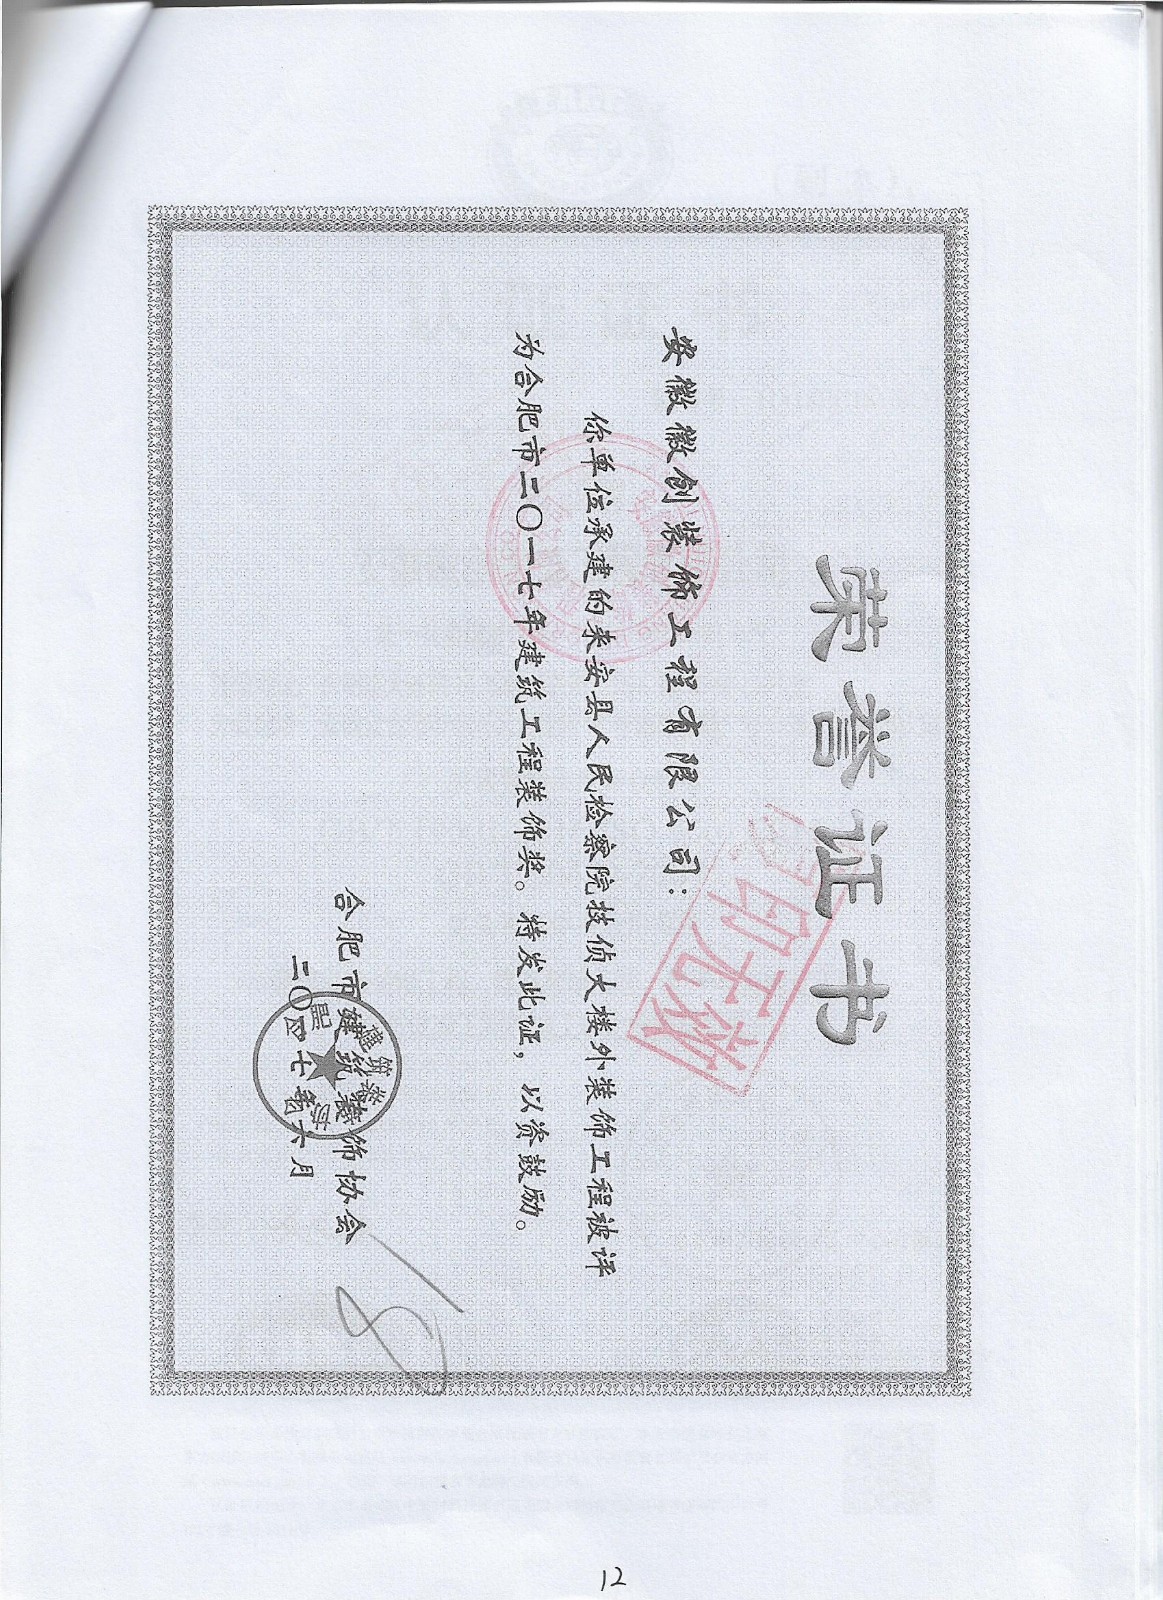 荣誉证书
安徽徽创装饰工程有限公司：
你单位承建的来安县人民检察院技侦大楼外装饰工程被评
为合肥市二〇一七年建筑工程装饰奖。特发此证，以资鼓励。
合肥市建筑装饰协会
六月
复印无效
12